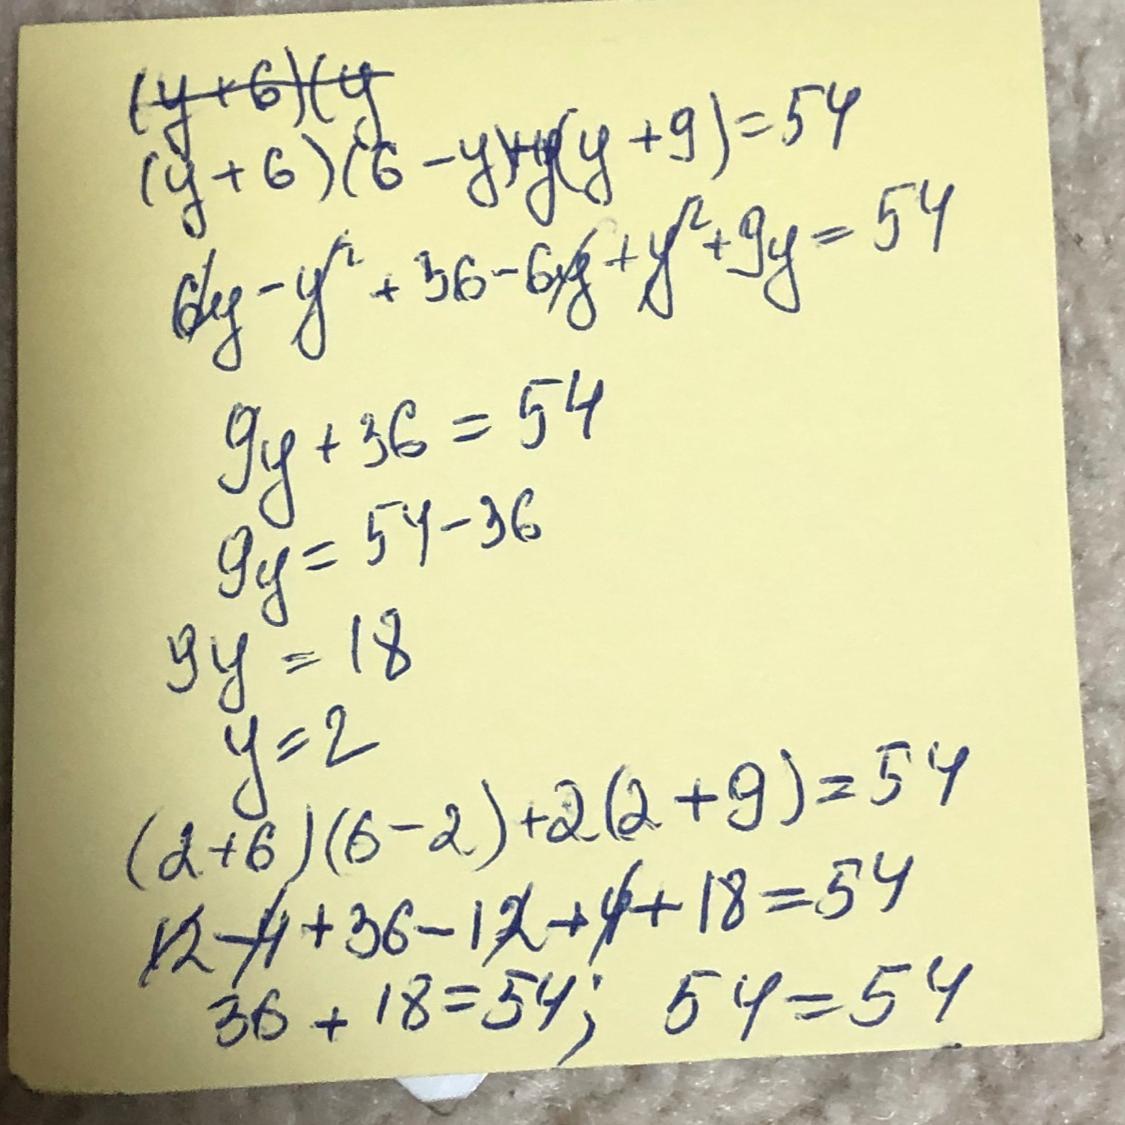 (y+6)(y
(y+6)(6-y)+y(y+9)=54
6y-y²+36-6y+y²+9y=54
9y+36=54
9y=54-36
9y=18
y=2
(2+6)(6-2)+2(2+9)=54
12-4+36-12+4+18=54
36+18=54; 54=54